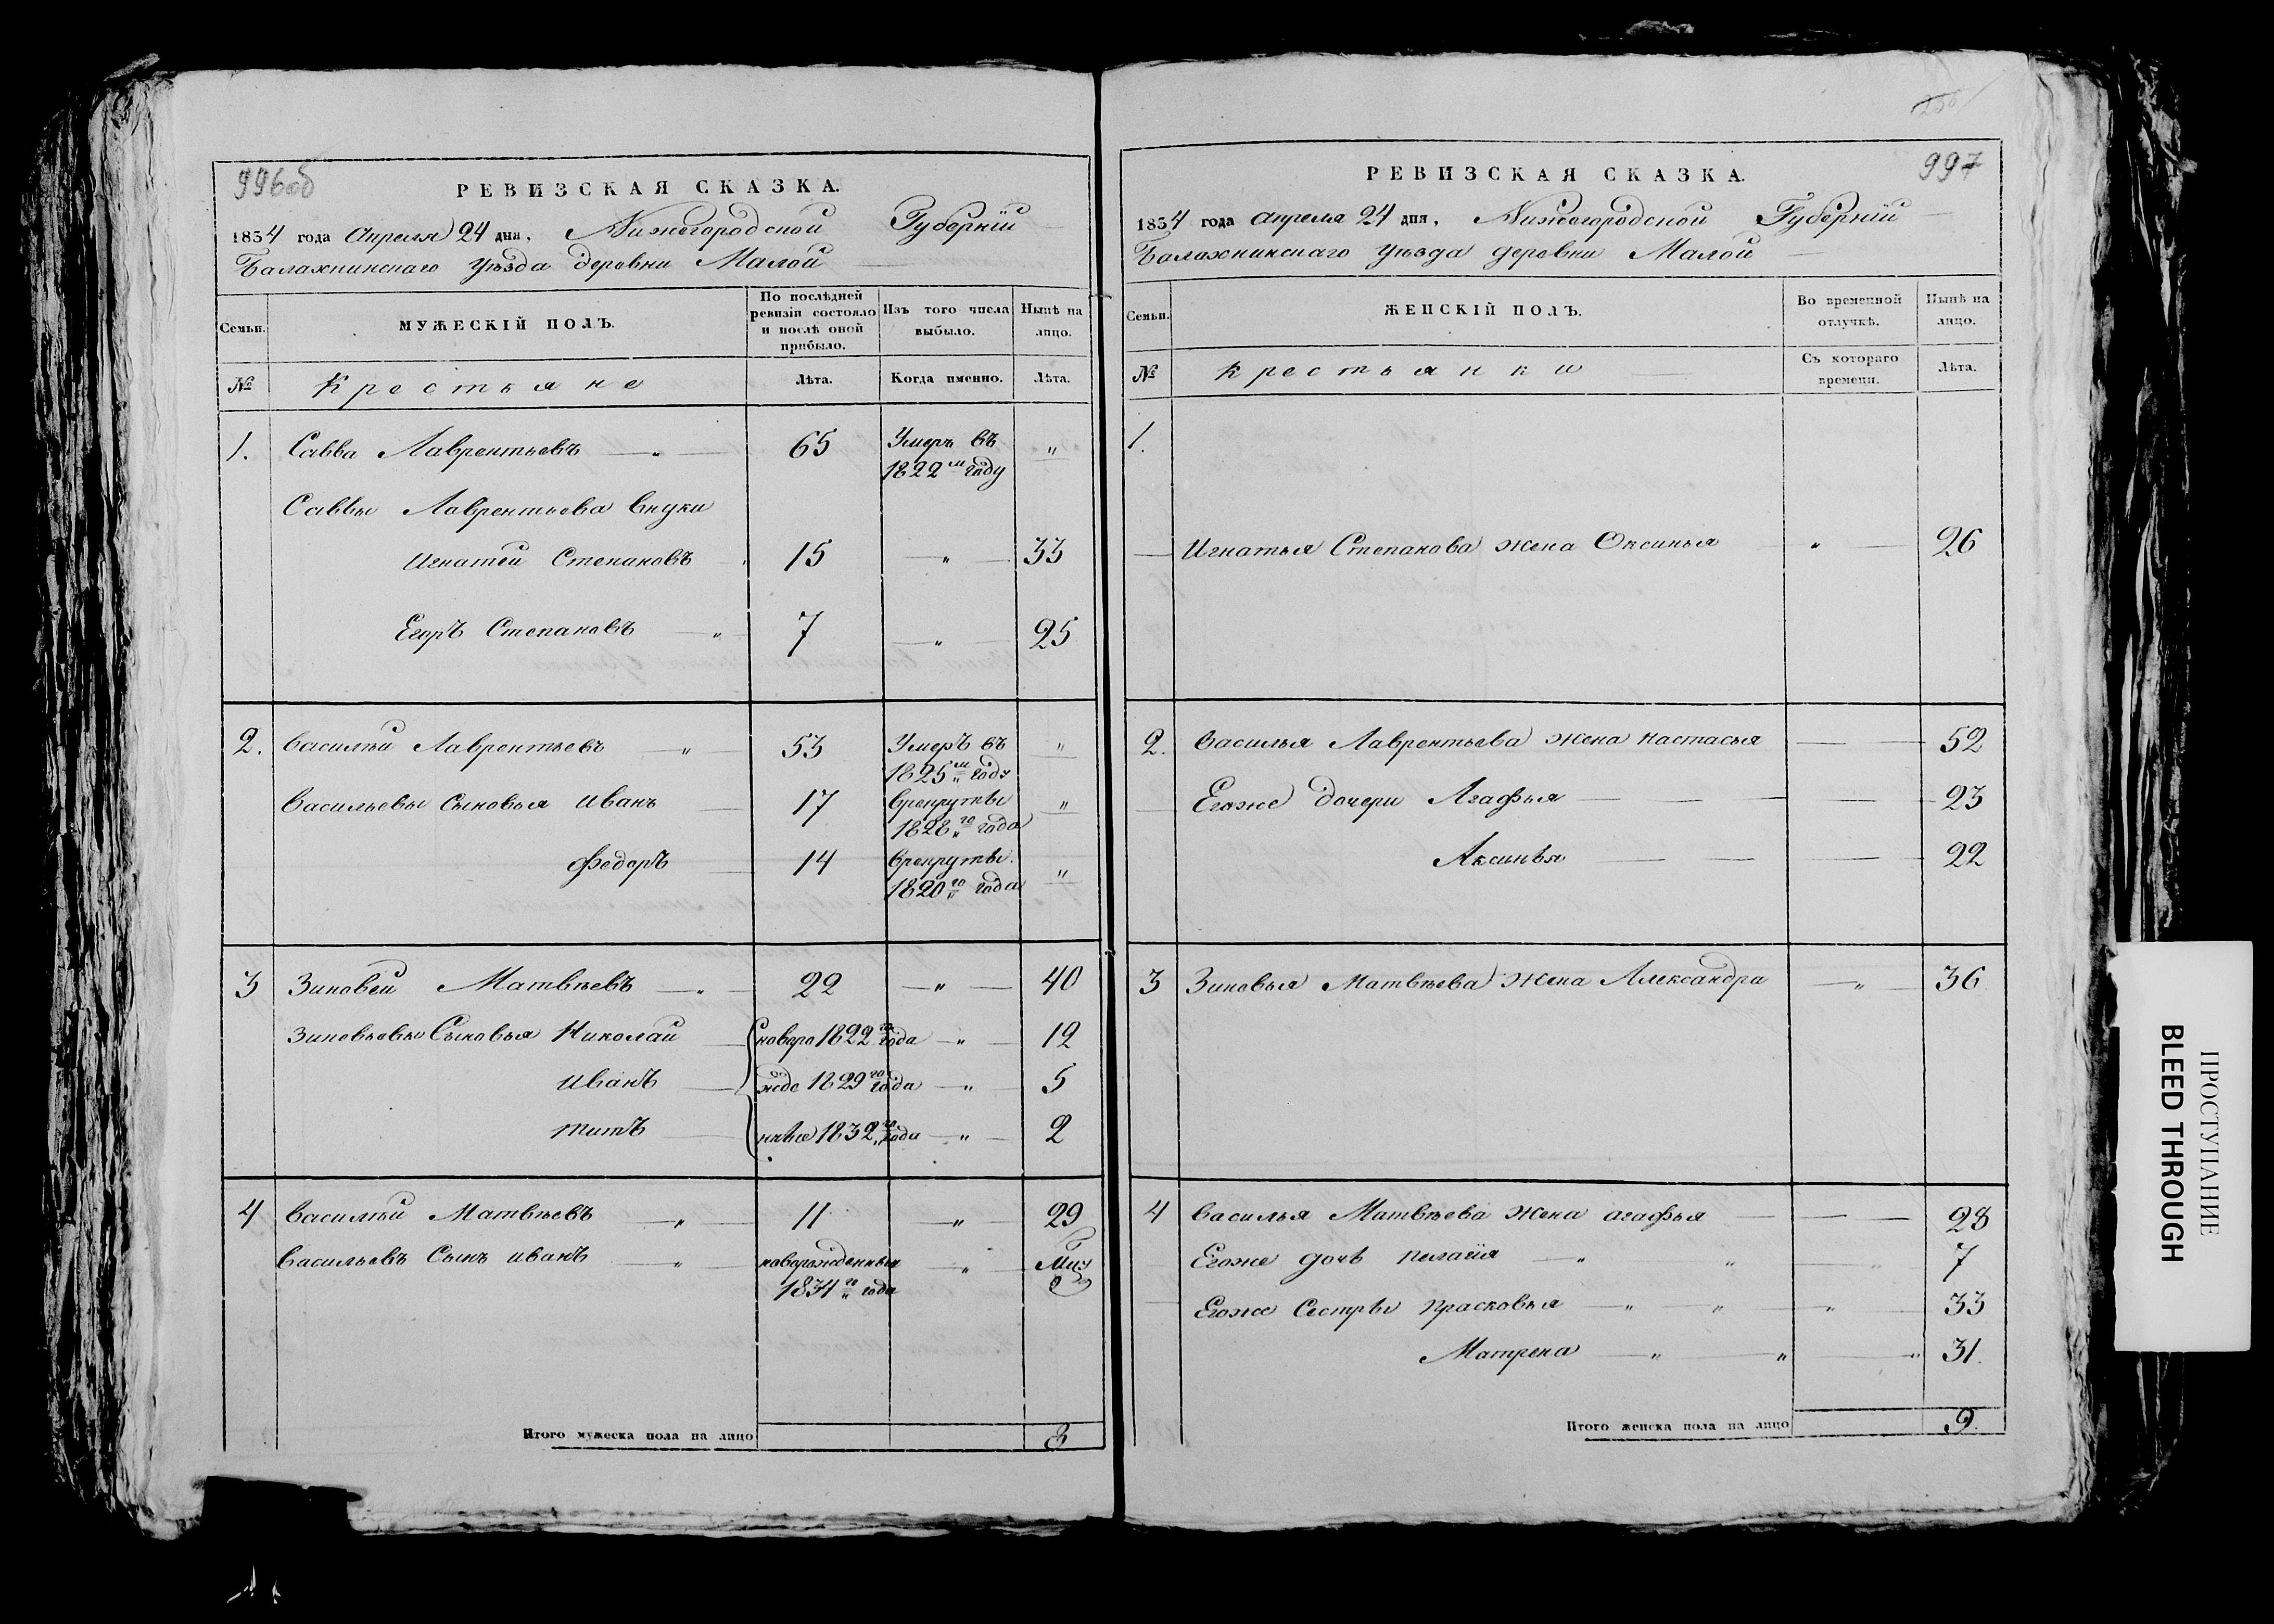 996об
РЕВИЗСКАЯ СКАЗКА.
1834 года Апреля 24 дня, Нижегородской Губерніи
Балахнинскаго уѣзда деревни Малой
Семьи.
МУЖЕСКІЙ ПОЛЪ.
По послѣдней ревизіи состояло и послѣ оной прибыло.
Изъ того числа выбыло.
Нынѣ на лицо.
№
Крестьяне
Лѣта.
Когда именно.
Лѣта.
1. Савва Лаврентьевъ — „ — 65 Умеръ въ „
1822м году
Саввы Лаврентьева внуки
Игнатей Степановъ 15 „ 33
Егоръ Степановъ — „ 7 — „ — 25
2. Василий Лаврентьевъ — „ 53 Умеръ въ „
1825м году
Васильевы сыновья Иванъ — 17 Врекруты „
1828го года
Федоръ — 14 Врекруты „
1820го года
3 Зиновей Матвѣевъ — „ — 22 — „ — 40
Зиновьевы Сыновья Николай — новоро 1822го года — „ — 12
Иванъ — жде 1829го года — „ — 5
Титъ — нные 1832го года — „ — 2
4 Василий Матвѣевъ — „ — 11 — „ — 29
Васильевъ Сынъ Иванъ — „ — новорожденный — „ —
1834го года
Итого мужеска пола на лицо 8
997
РЕВИЗСКАЯ СКАЗКА.
1834 года Апреля 24 дня, Нижегородской Губерніи
Балахнинскаго уѣзда деревни Малой
Семьи.
ЖЕНСКІЙ ПОЛЪ.
Во временной отлучкѣ.
Нынѣ на лицо.
№
Крестьянки
Съ котораго времени.
Лѣта.
1.
Игнатья Степанова жена Оксинья „ — 26
2. Василья Лаврентьева жена Настасья — 52
Егоже дочери Агафья — 23
Аксинья — 22
3 Зиновья Матвѣева жена Александра — „ — 36
4 Василья Матвѣева жена Агафья — 28
Егоже дочь Пелагія — „ „ — „ — 7
Егоже Сестры Прасковья — „ „ — „ — 33
Матрена — „ — „ — „ 31.
Итого женска пола на лицо 9.
ПРОСТУПАНИЕ
BLEED THROUGH